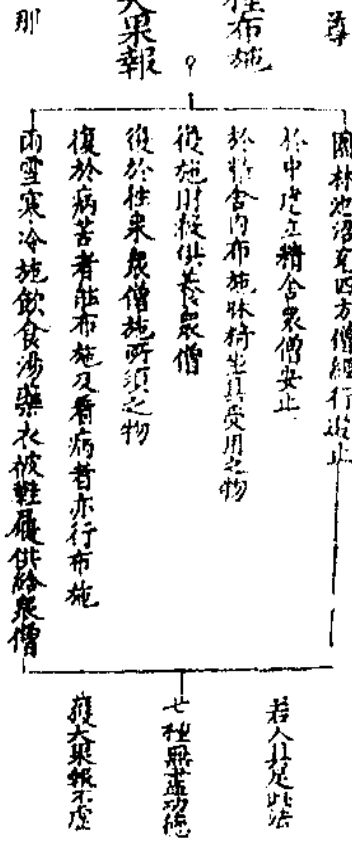 尊
種布施
大果報
那
園林池沼充四方僧經行遊止
於中建立精舍眾僧安止
於精舍內布施牀椅坐具受用之物
復施財穀供養眾僧
復於往來眾僧施所須之物
復於病苦者能布施及看病者亦行布施
雨雪寒冷施飲食湯藥衣被鞋履供給眾僧
若人具足此法
七種無盡功德
獲大果報不虛